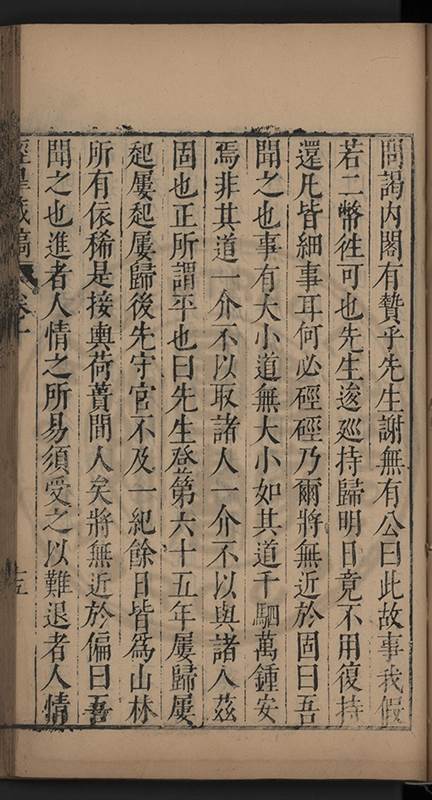 問謁內閣有贄乎先生謝無有公曰此故事我假
若二幣徃可也先生逡廵持歸明日竟不用復持
還凡皆細事耳何必硜硜乃爾將無近於固曰吾
聞之也事有大小道無大小如其道千駟萬鍾安
焉非其道一介不以取諸人一介不以與諸人茲
固也正所謂平也曰先生登第六十五年屢歸屢
起屢起屢歸後先守官不及一紀餘日皆爲山林
所有依稀是接輿荷蕢間人矣將無近於偏曰吾
聞之也進者人情之所易須受之以難退者人情
涇臯藏稿 卷十
十五